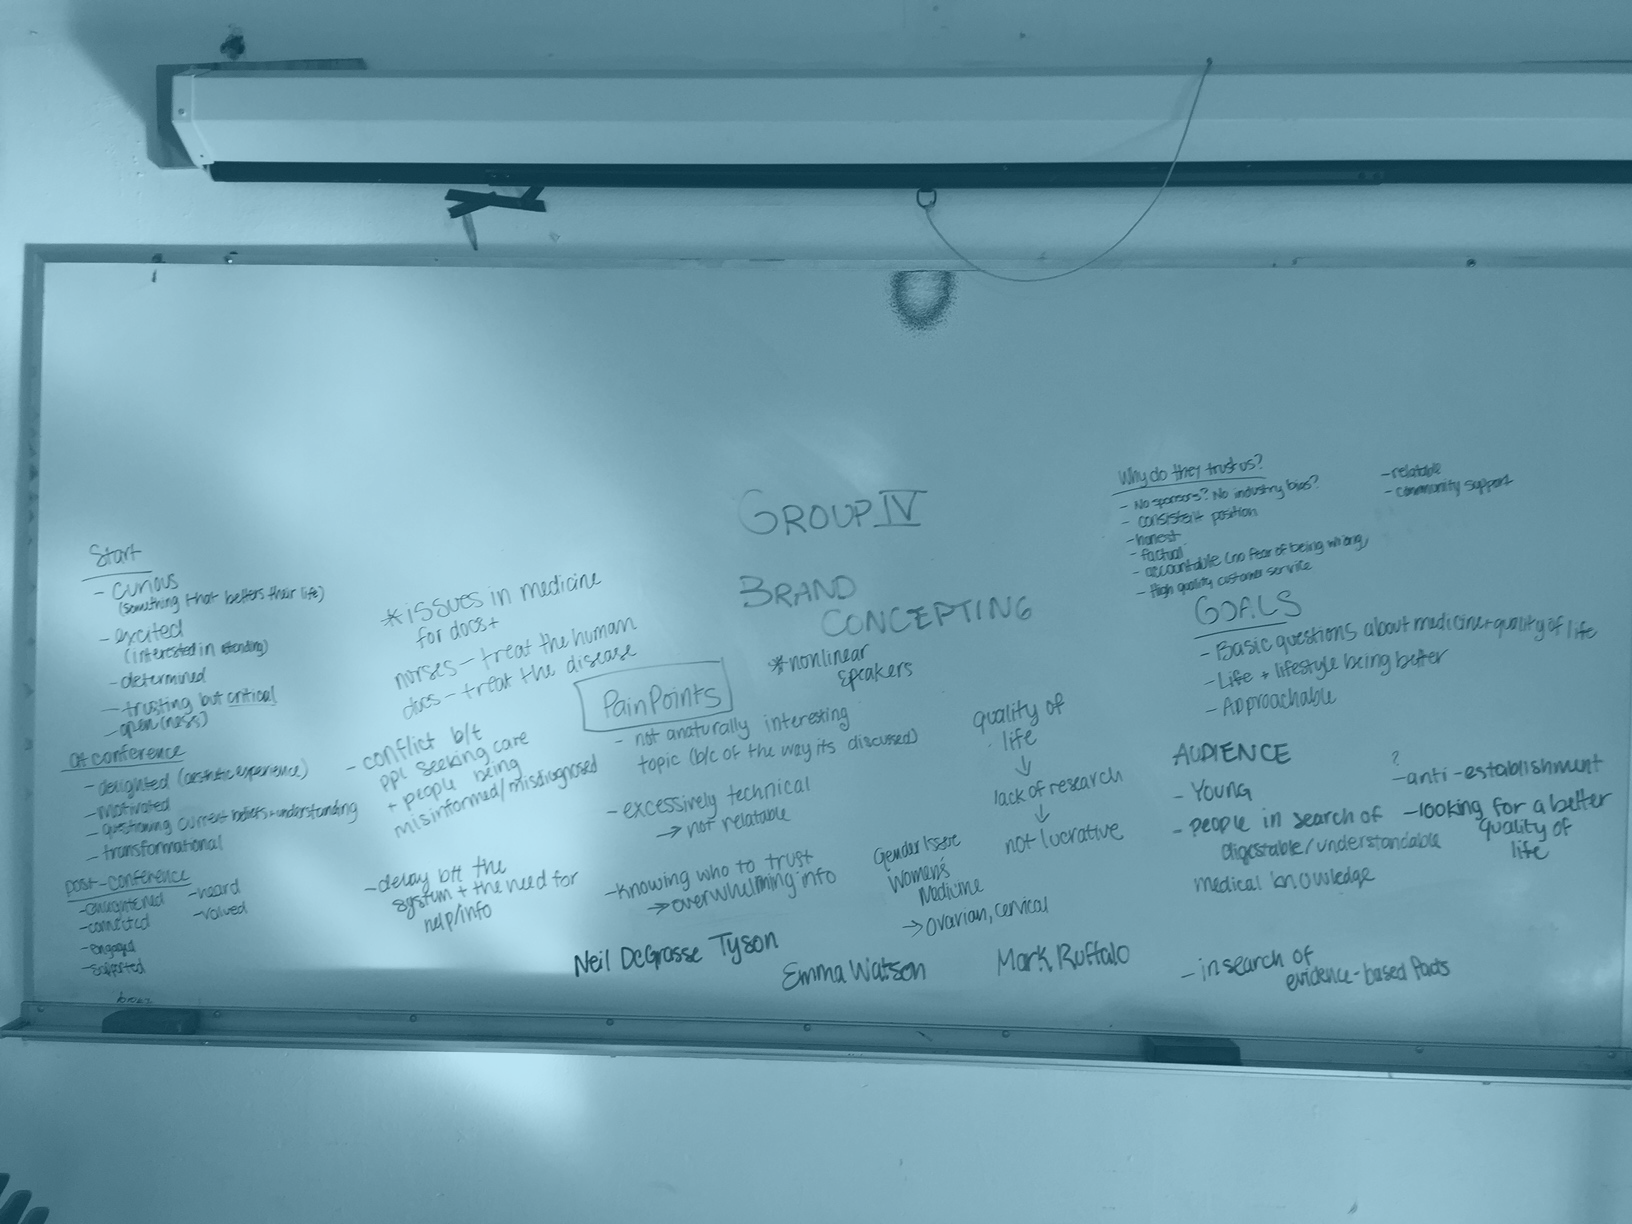 GROUP IV
BRAND
CONCEPTING
*nonlinear
speakers
Start
- curious
(something that betters their life)
- excited
(interested in attending)
- determined
- trusting but critical
- open(ness)
at conference
- delighted (aesthetic experience)
- motivated
- questioning current beliefs + understanding
- transformational
post-conference
- enlightened
- connected
- engaged
- supported
- heard
- valued
*issues in medicine
for docs+
nurses - treat the human
docs - treat the disease
- conflict b/t
ppl seeking care
+ people being
misinformed/misdiagnosed
- delay btt the
system + the need for
help/info
Pain Points
- not anaturally interesting
topic (b/c of the way its discussed)
- excessively technical
→ not relatable
- knowing who to trust
→ overwhelming info
quality of
life
↓
lack of research
↓
not lucrative
Gender Issue
Women's
Medicine
→ ovarian, cervical
Neil DeGrasse Tyson
Emma Watson
Mark Ruffalo
Why do they trust us?
- No sponsors? No industry bias?
- consistent position
- honest
- factual
- accountable (no fear of being wrong)
- High quality customer service
- relatable
- community support
GOALS
- Basic questions about medicine + quality of life
- Life + lifestyle being better
- Approachable
AUDIENCE
- Young
- people in search of
digestable/understandable
medical knowledge
?
- anti-establishment
- looking for a better
quality of
life
- in search of
evidence-based facts